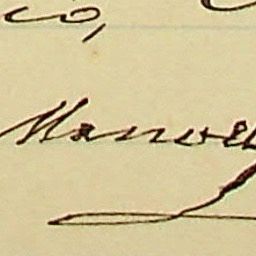 io,
Manoel